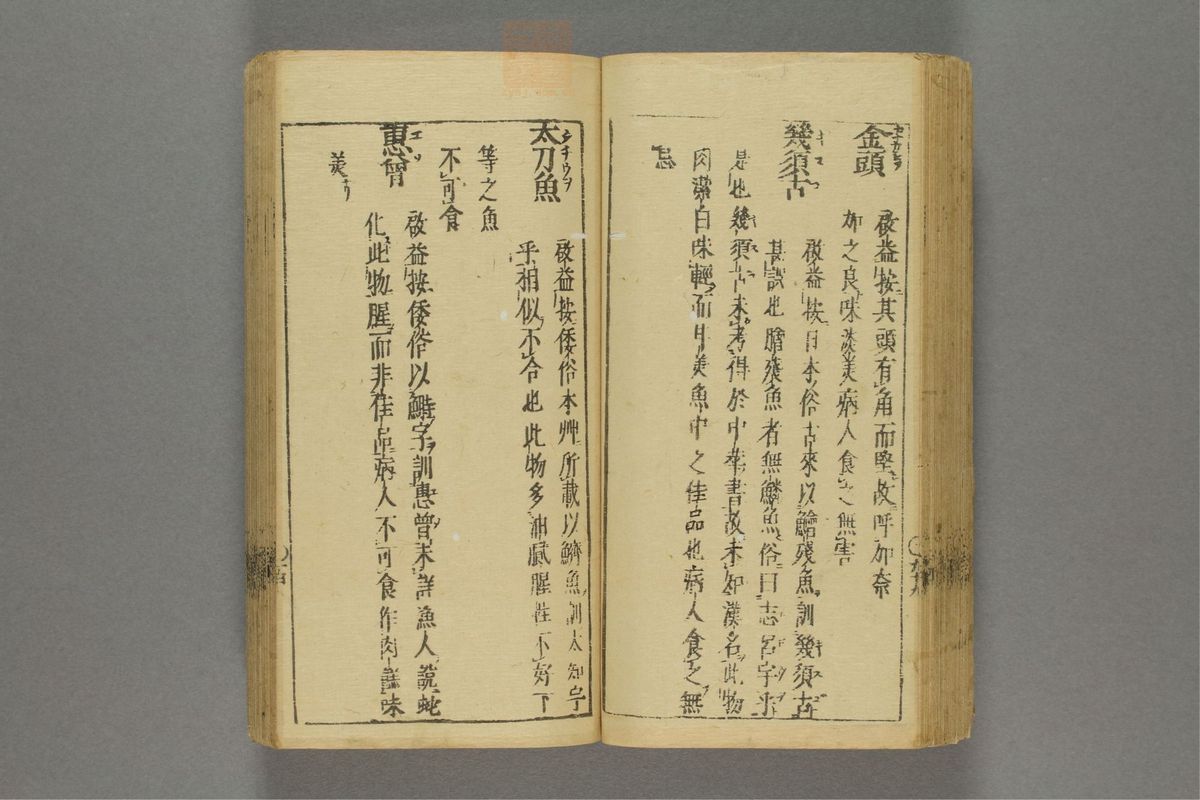 金頭
啟益按其頭有角而堅故呼加奈
加之良味淡美病人食之無害
幾須古
啟益按日本俗古來以鱠殘魚訓幾須古
甚誤也膾殘魚者無鱗魚俗曰志呂
是也幾須古未考得於中華書故未知漢名此物
肉潔白味輕而甘美魚中之佳品也病人食之無
忌
太刀魚
タチウヲ
啟益按倭俗本艸所載以鱭魚訓太知
乎相似不合也此物多油膩腥性不好下
等之魚
不可食
惠曾
エソ
啟益按倭俗以鱛字訓惠曾未詳漁人說蛇
化此物腥而非佳品病人不可食作肉味
美ナリ